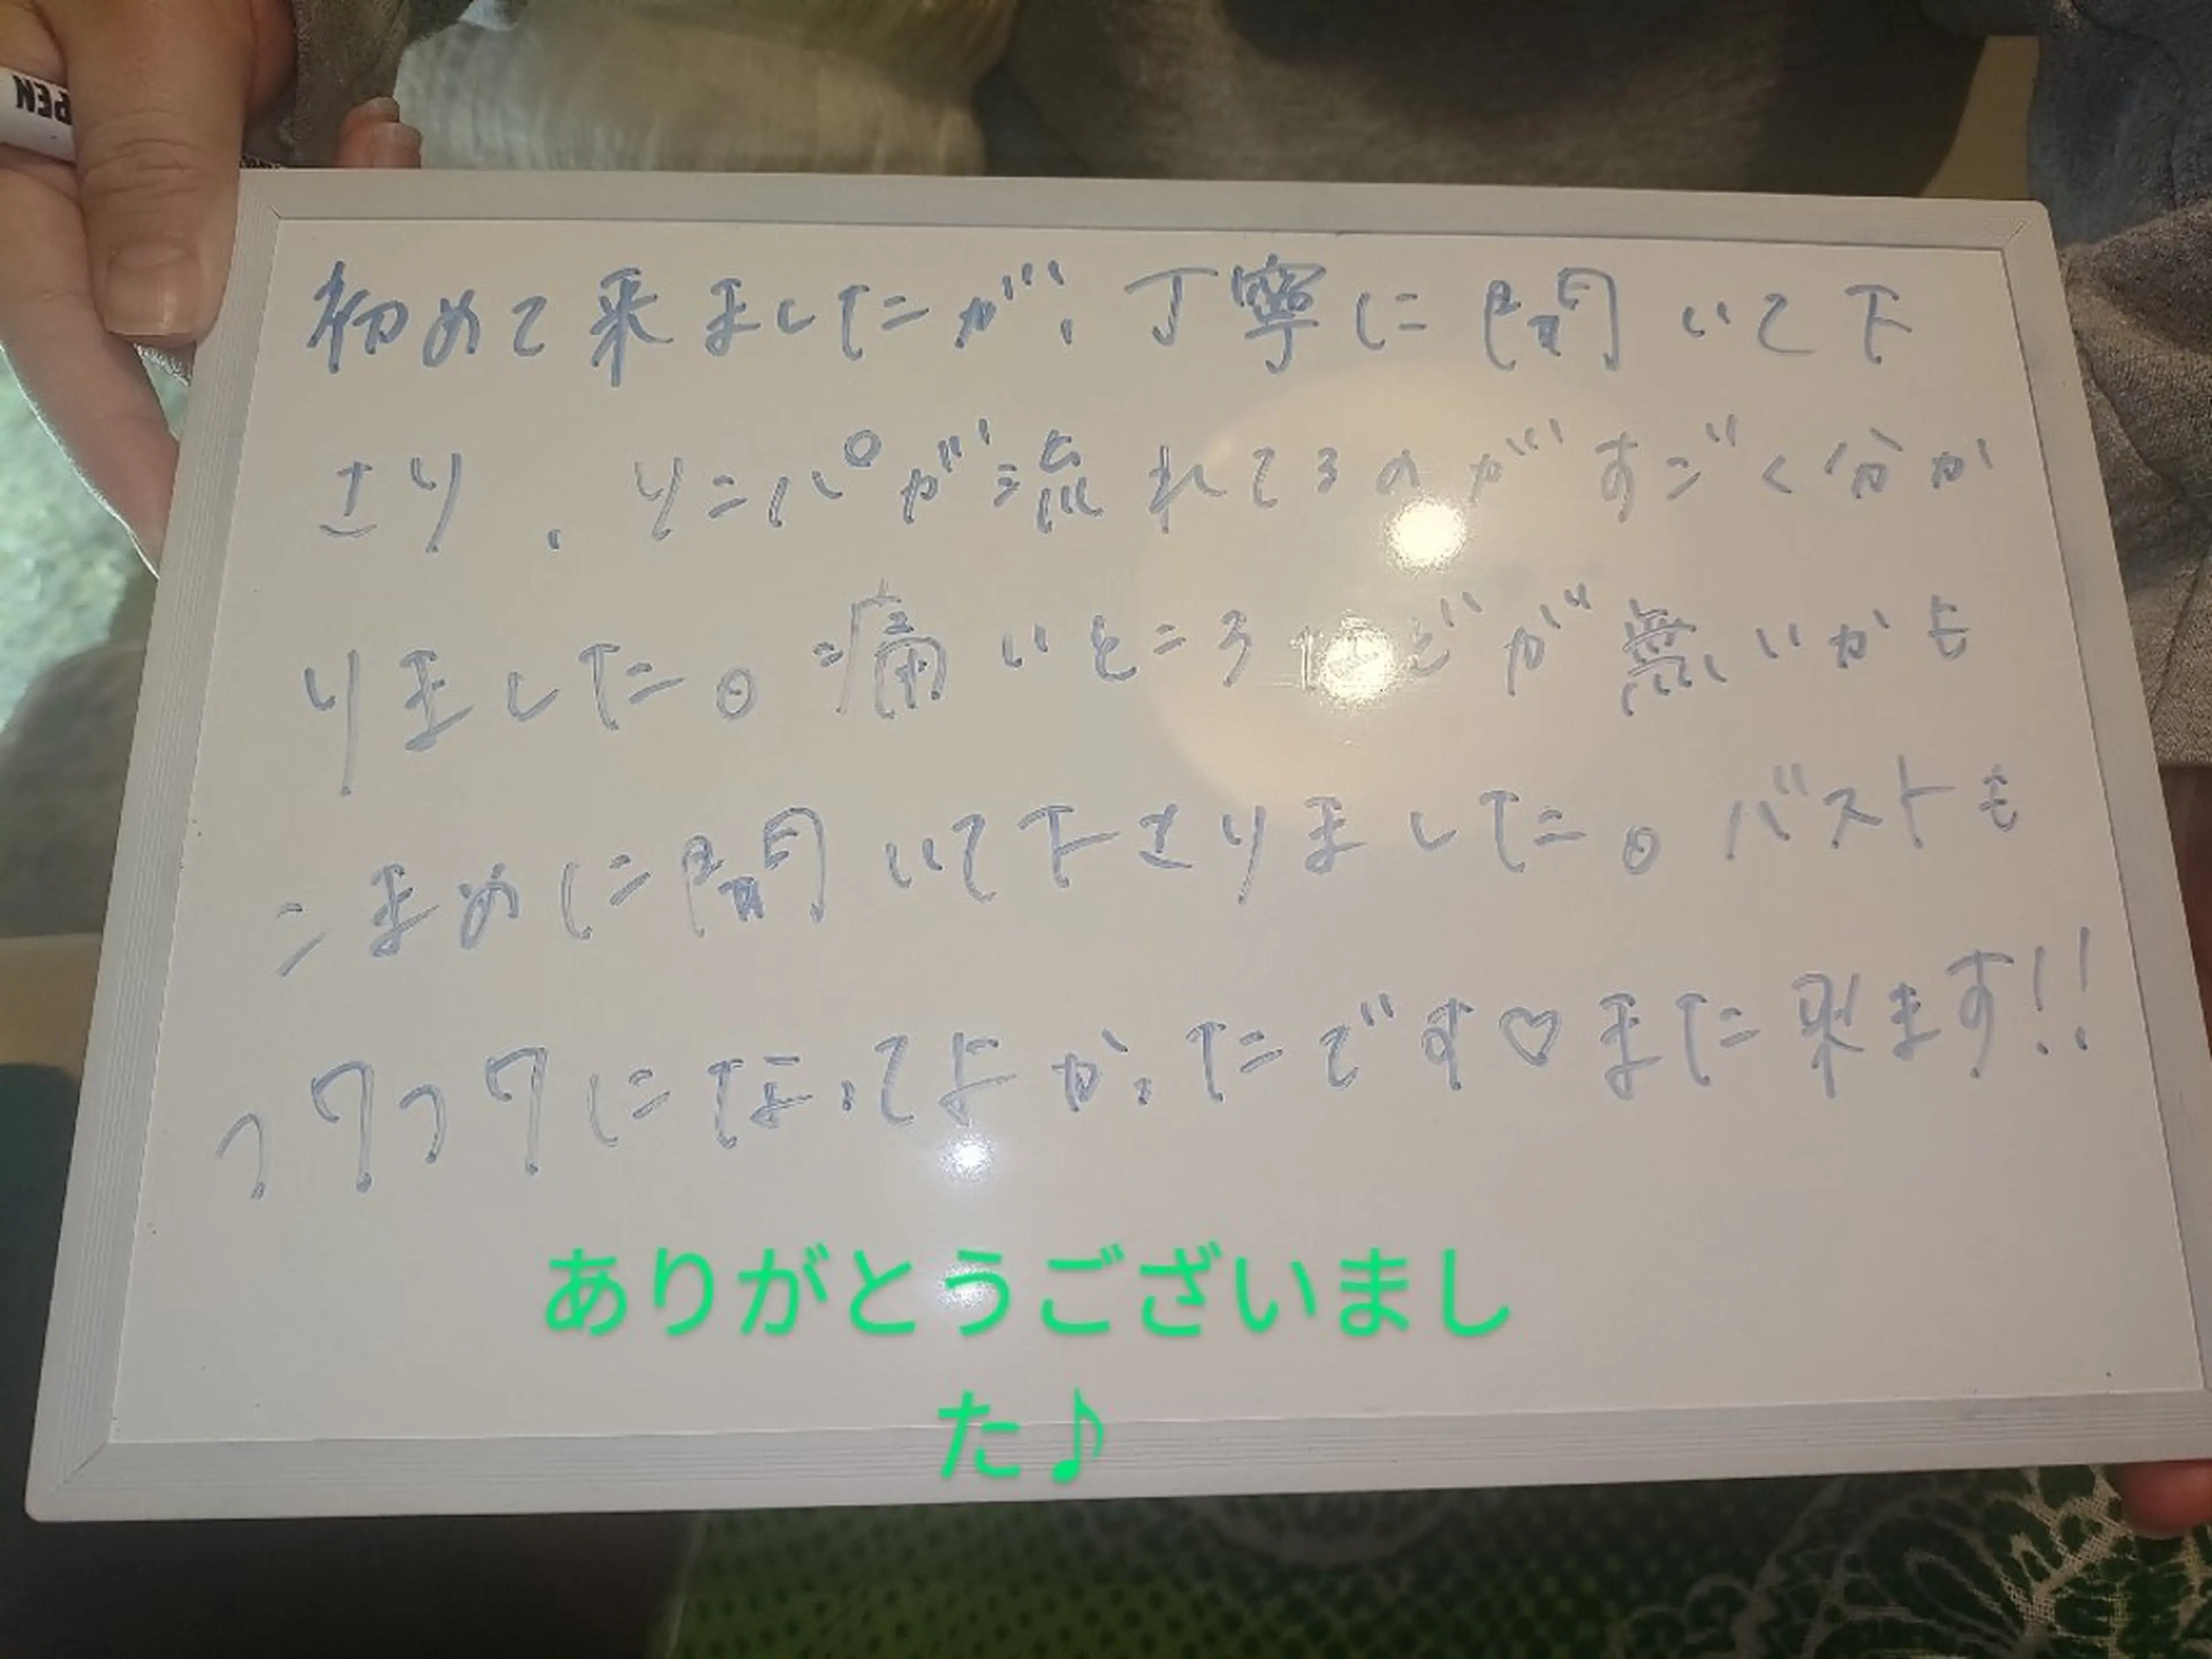 PEN
初めて来ましたが、丁寧に聞いて下
さり、リンパが流れてるのがすごく分か
りました。痛いところなどが無いかも
こまめに聞いて下さりました。バストも
フワフワになってよかったです♡また来ます!!
ありがとうございまし
た♪